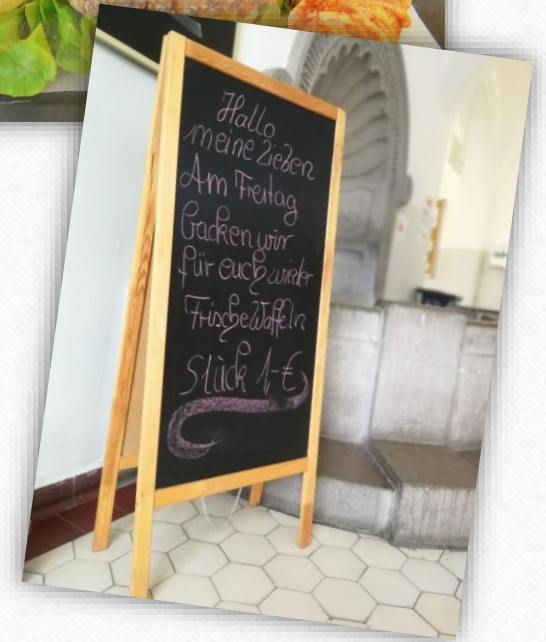 Hallo
meine Lieben
Am Freitag
backen wir
für euch wieder
Frische Waffeln
Stück 1,-€